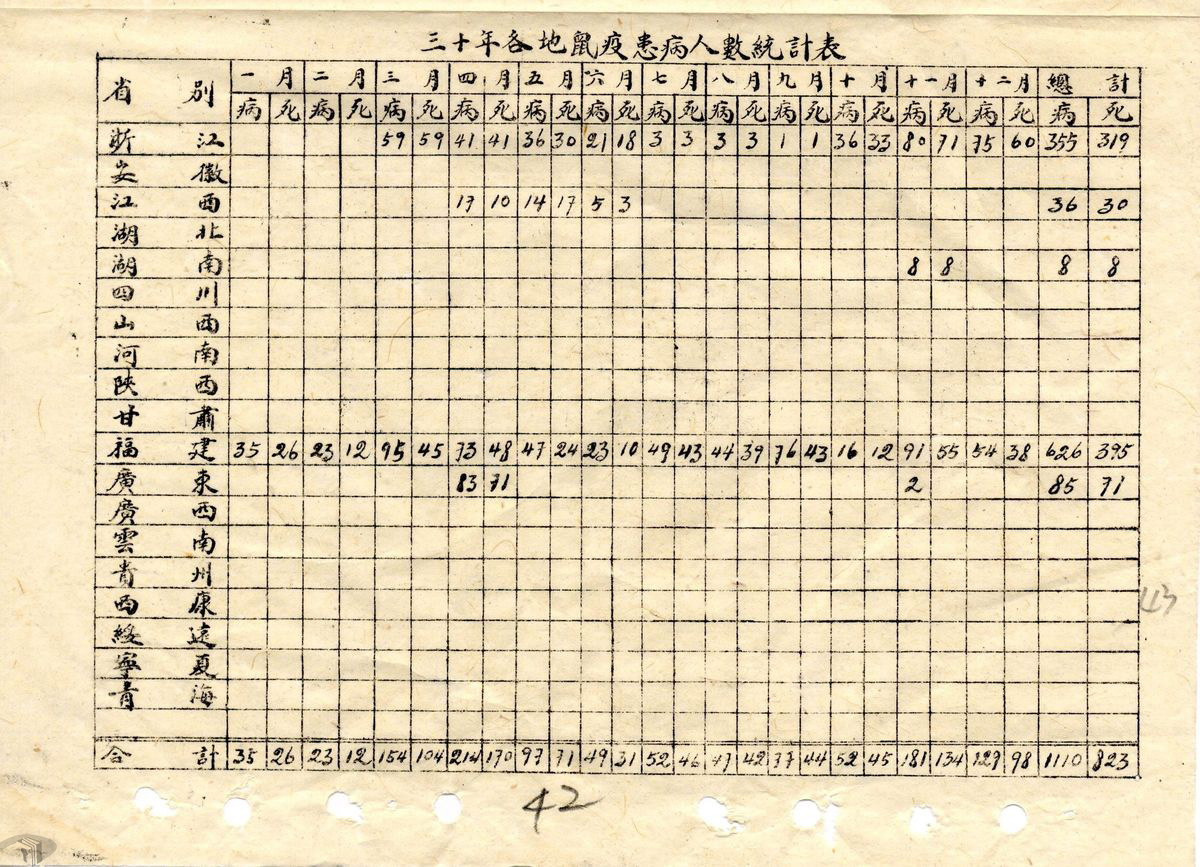 三十年各地鼠疫患病人數統計表
省別 一月 二月 三月 四月 五月 六月 七月 八月 九月 十月 十一月 十二月 總計
病 死 病 死 病 死 病 死 病 死 病 死 病 死 病 死 病 死 病 死 病 死 病 死 病 死
浙江 59 59 41 41 36 30 21 18 3 3 3 3 1 1 36 33 80 71 75 60 355 319
安徽
江西 17 10 14 17 5 3 36 30
湖北
湖南 8 8 8 8
四川
山西
河南
陝西
甘肅
福建 35 26 23 12 95 45 73 48 47 24 23 10 49 43 44 39 76 43 16 12 91 55 54 38 626 395
廣東 83 71 2 85 71
廣西
雲南
貴州
西康
綏遠
寧夏
青海
合計 35 26 23 12 154 104 214 170 97 71 49 31 52 46 47 42 77 44 52 45 181 134 127 98 1110 823
42
43